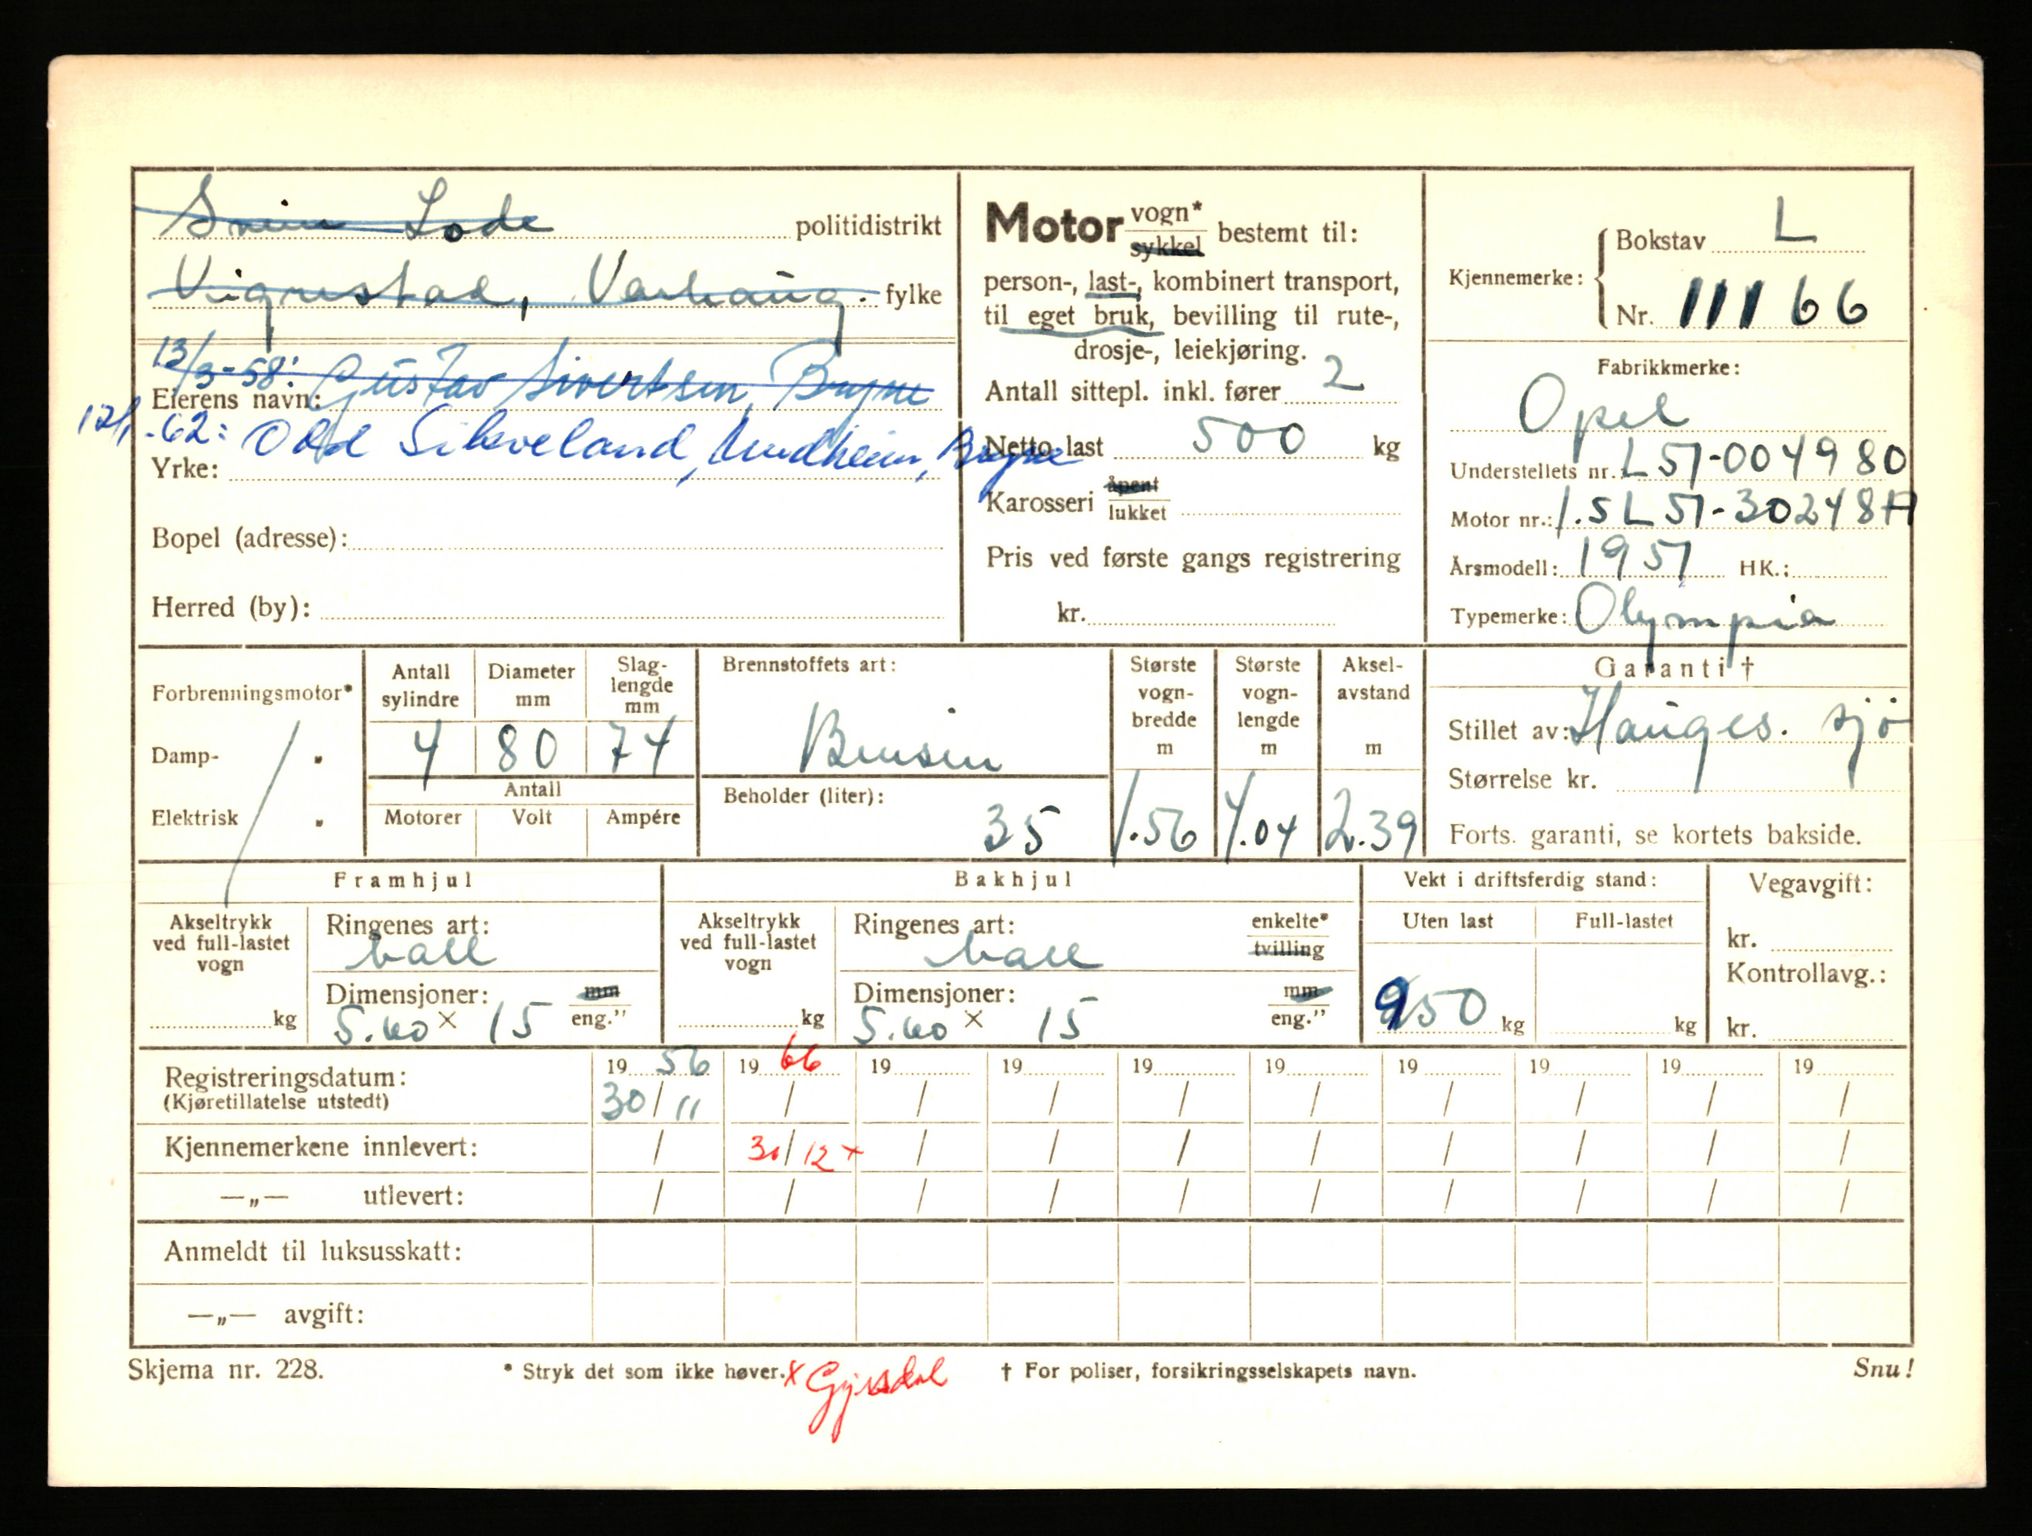 Svein Lode politidistrikt
Vigrestad, Varhaug. fylke
13/3-58: Gustav Sivertsen, Bryne
Eierens navn:
12/1-62: Odd Silseveland, Undheim, Bryne
Yrke:
Bopel (adresse):
Herred (by):
Motor vogn* sykkel bestemt til:
person-, last-, kombinert transport,
til eget bruk, bevilling til rute-,
drosje-, leiekjøring.
Antall sittepl. inkl. fører 2
Netto last 500 kg
Karosseri åpent lukket
Pris ved første gangs registrering
kr.
Kjennemerke: Bokstav L
Nr. 111166
Fabrikkmerke:
Opel
Understellets nr.: L51-004980
Motor nr.: 1.5L51-30248A
Årsmodell: 1951 HK.:
Typemerke: Olympia
Forbrenningsmotor*
Damp- "
Elektrisk "
Antall sylindre 4
Diameter mm 80
Slag-lengde mm 74
Antall
Motorer Volt Ampére
Brennstoffets art:
Bensin
Beholder (liter):
35
Største vogn-bredde m 1.56
Største vogn-lengde m 4.04
Aksel-avstand m 2.39
Garanti †
Stillet av: Hauges. sjø
Størrelse kr.
Forts. garanti, se kortets bakside.
Framhjul
Akseltrykk ved full-lastet vogn
kg
Ringenes art:
ball
Dimensjoner: mm
5.60 × 15 eng."
Bakhjul
Akseltrykk ved full-lastet vogn
kg
Ringenes art: enkelte* tvilling
ball
Dimensjoner: mm
5.60 × 15 eng."
Vekt i driftsferdig stand:
Uten last Full-lastet
950 kg kg
Vegavgift:
kr.
Kontrollavg.:
kr.
Registreringsdatum: 19 56 19 66 19 19 19 19 19 19 19 19
(Kjøretillatelse utstedt) 30/11 / / / / / / / / /
Kjennemerkene innlevert: / 30/12 x / / / / / / / /
—„— utlevert: / / / / / / / / / /
Anmeldt til luksusskatt:
—„— avgift:
Skjema nr. 228. * Stryk det som ikke høver. x Gjesdal † For poliser, forsikringsselskapets navn. Snu!